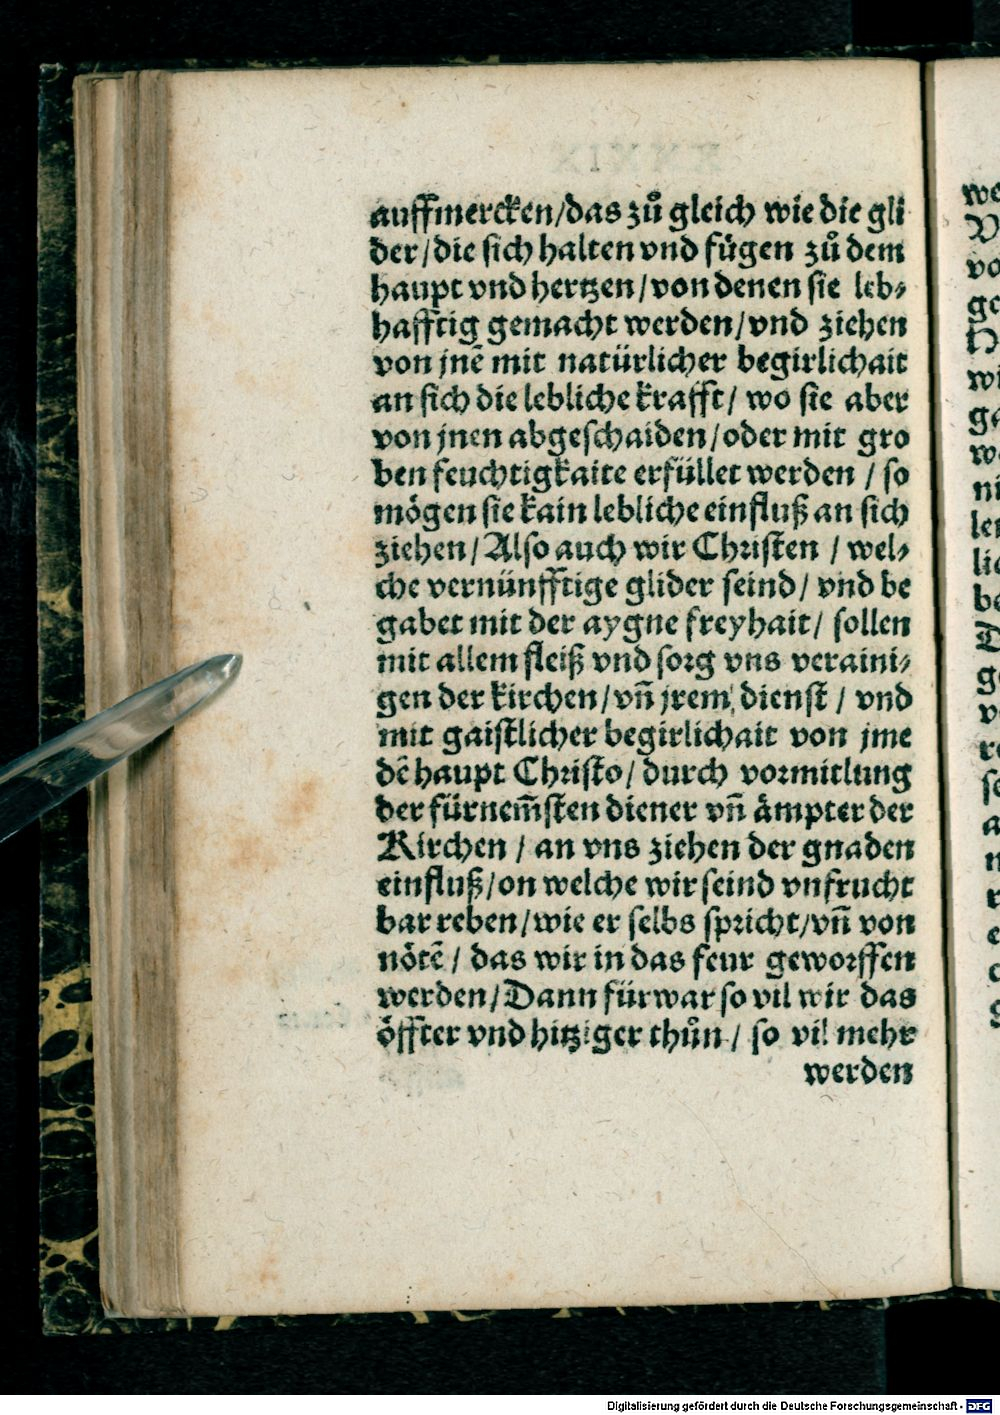 auffmercken/das zuͦ gleich wie die gli
der/die sich halten vnd fuͤgen zuͦ dem
haupt vnd hertzen/von denen sie leb⸗
hafftig gemacht werden/vnd ziehen
von jnē mit natürlicher begirlichait
an sich die lebliche krafft/ wo sie aber
von jnen abgeschaiden/oder mit gro
ben feuchtigkaite erfüllet werden / so
mögen sie kain lebliche einfluß an sich
ziehen/Also auch wir Christen / wel⸗
che vernünfftige glider seind/ vnd be
gabet mit der aygne freyhait/ sollen
mit allem fleiß vnd sorg vns veraini⸗
gen der kirchen/vn̄ jrem dienst / vnd
mit gaistlicher begirlichait von jme
dē haupt Christo/ durch vormitlung
der fürnem̄sten diener vn̄ ämpter der
Kirchen / an vns ziehen der gnaden
einfluß/on welche wir seind vnfrucht
bar reben/wie er selbs spricht/vn̄ von
nötē / das wir in das feur geworffen
werden/Dann fürwar so vil wir das
öffter vnd hitziger thuͦn / so vil mehr
werden
Digitalisierung gefördert durch die Deutsche Forschungsgemeinschaft - DFG